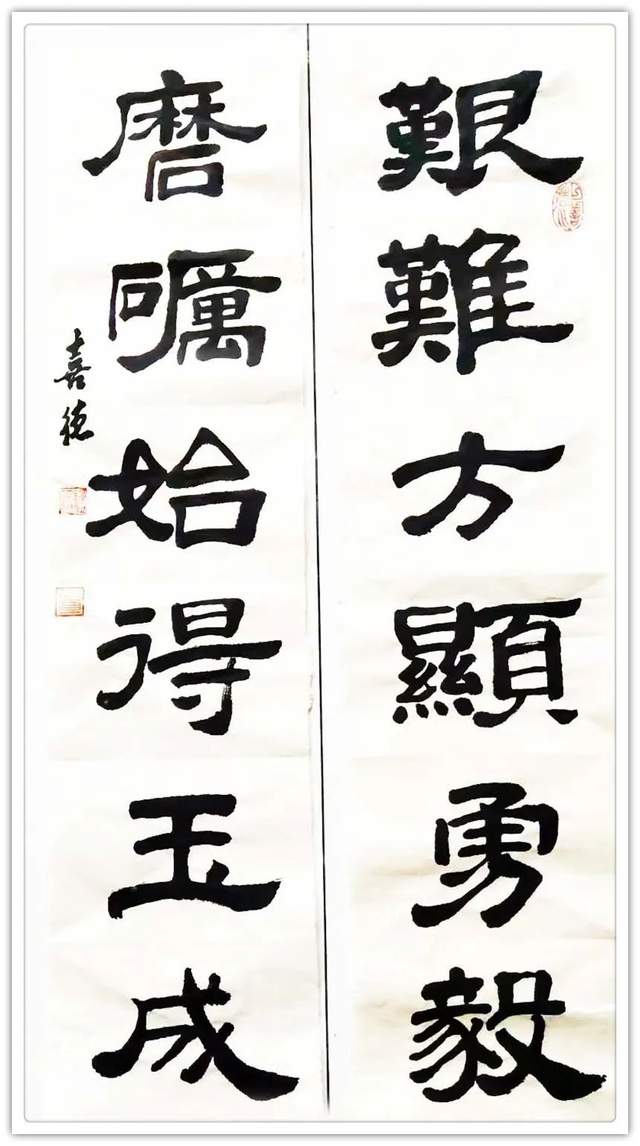 艱難方顯勇毅
磨礪始得玉成
喜德